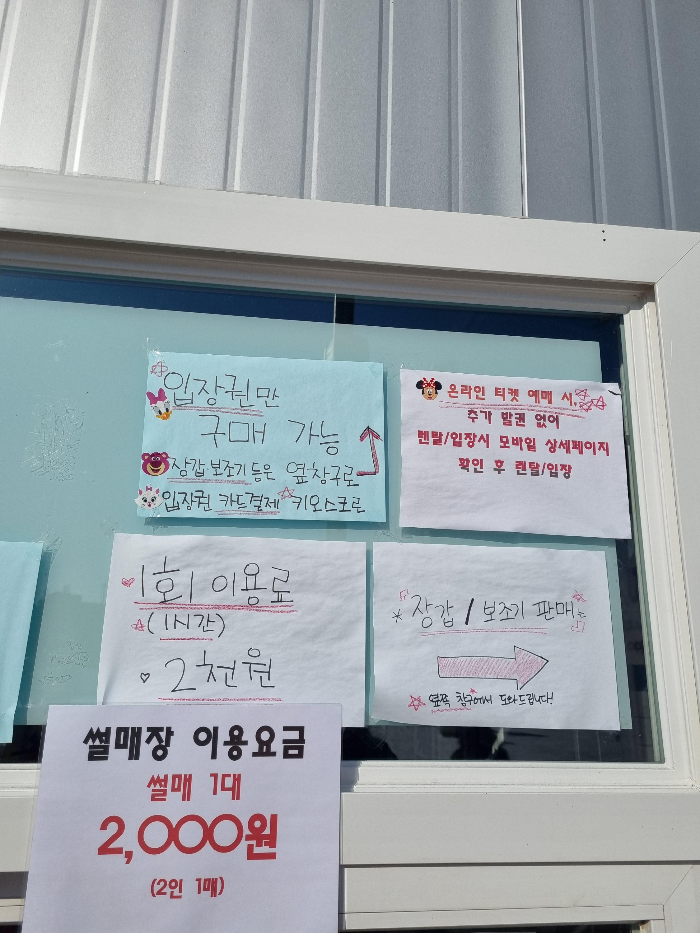 입장권만
구매 가능
장갑 보조기 등은 옆창구로
입장권 카드결제 키오스크로
온라인 티켓 예매 시,
추가 발권 없이
렌탈/입장시 모바일 상세페이지
확인 후 렌탈/입장
1회 이용료
(1시간)
2천원
* 장갑 / 보조기 판매는
옆쪽 창구에서 도와드립니다!
썰매장 이용요금
썰매 1대
2,000원
(2인 1매)